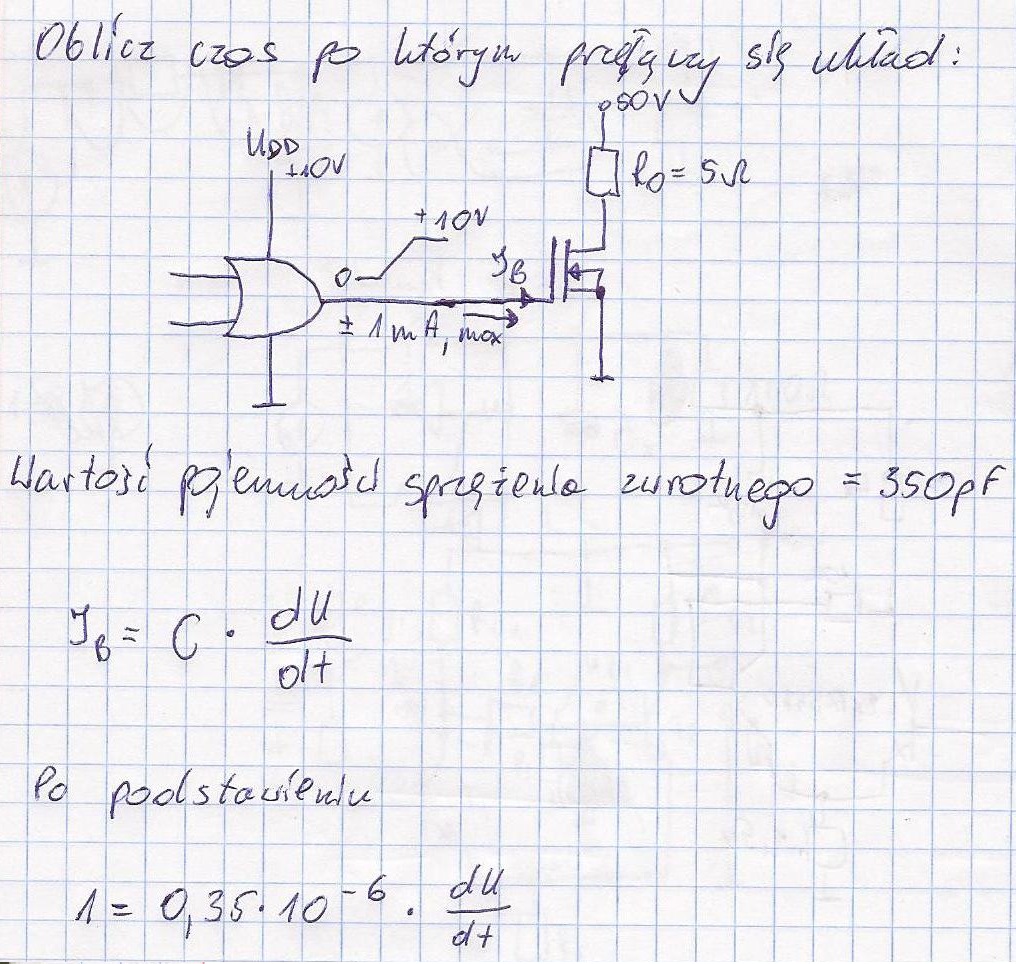 Oblicz czas po którym przełączy się układ:
50V
UDD
+10V
R0 = 5Ω
+10V
0
IB
± 1mA, max
Wartość pojemności sprzężenia zwrotnego = 350pF
IB = C · dU/dt
Po podstawieniu
1 = 0,35·10⁻⁶ · dU/dt